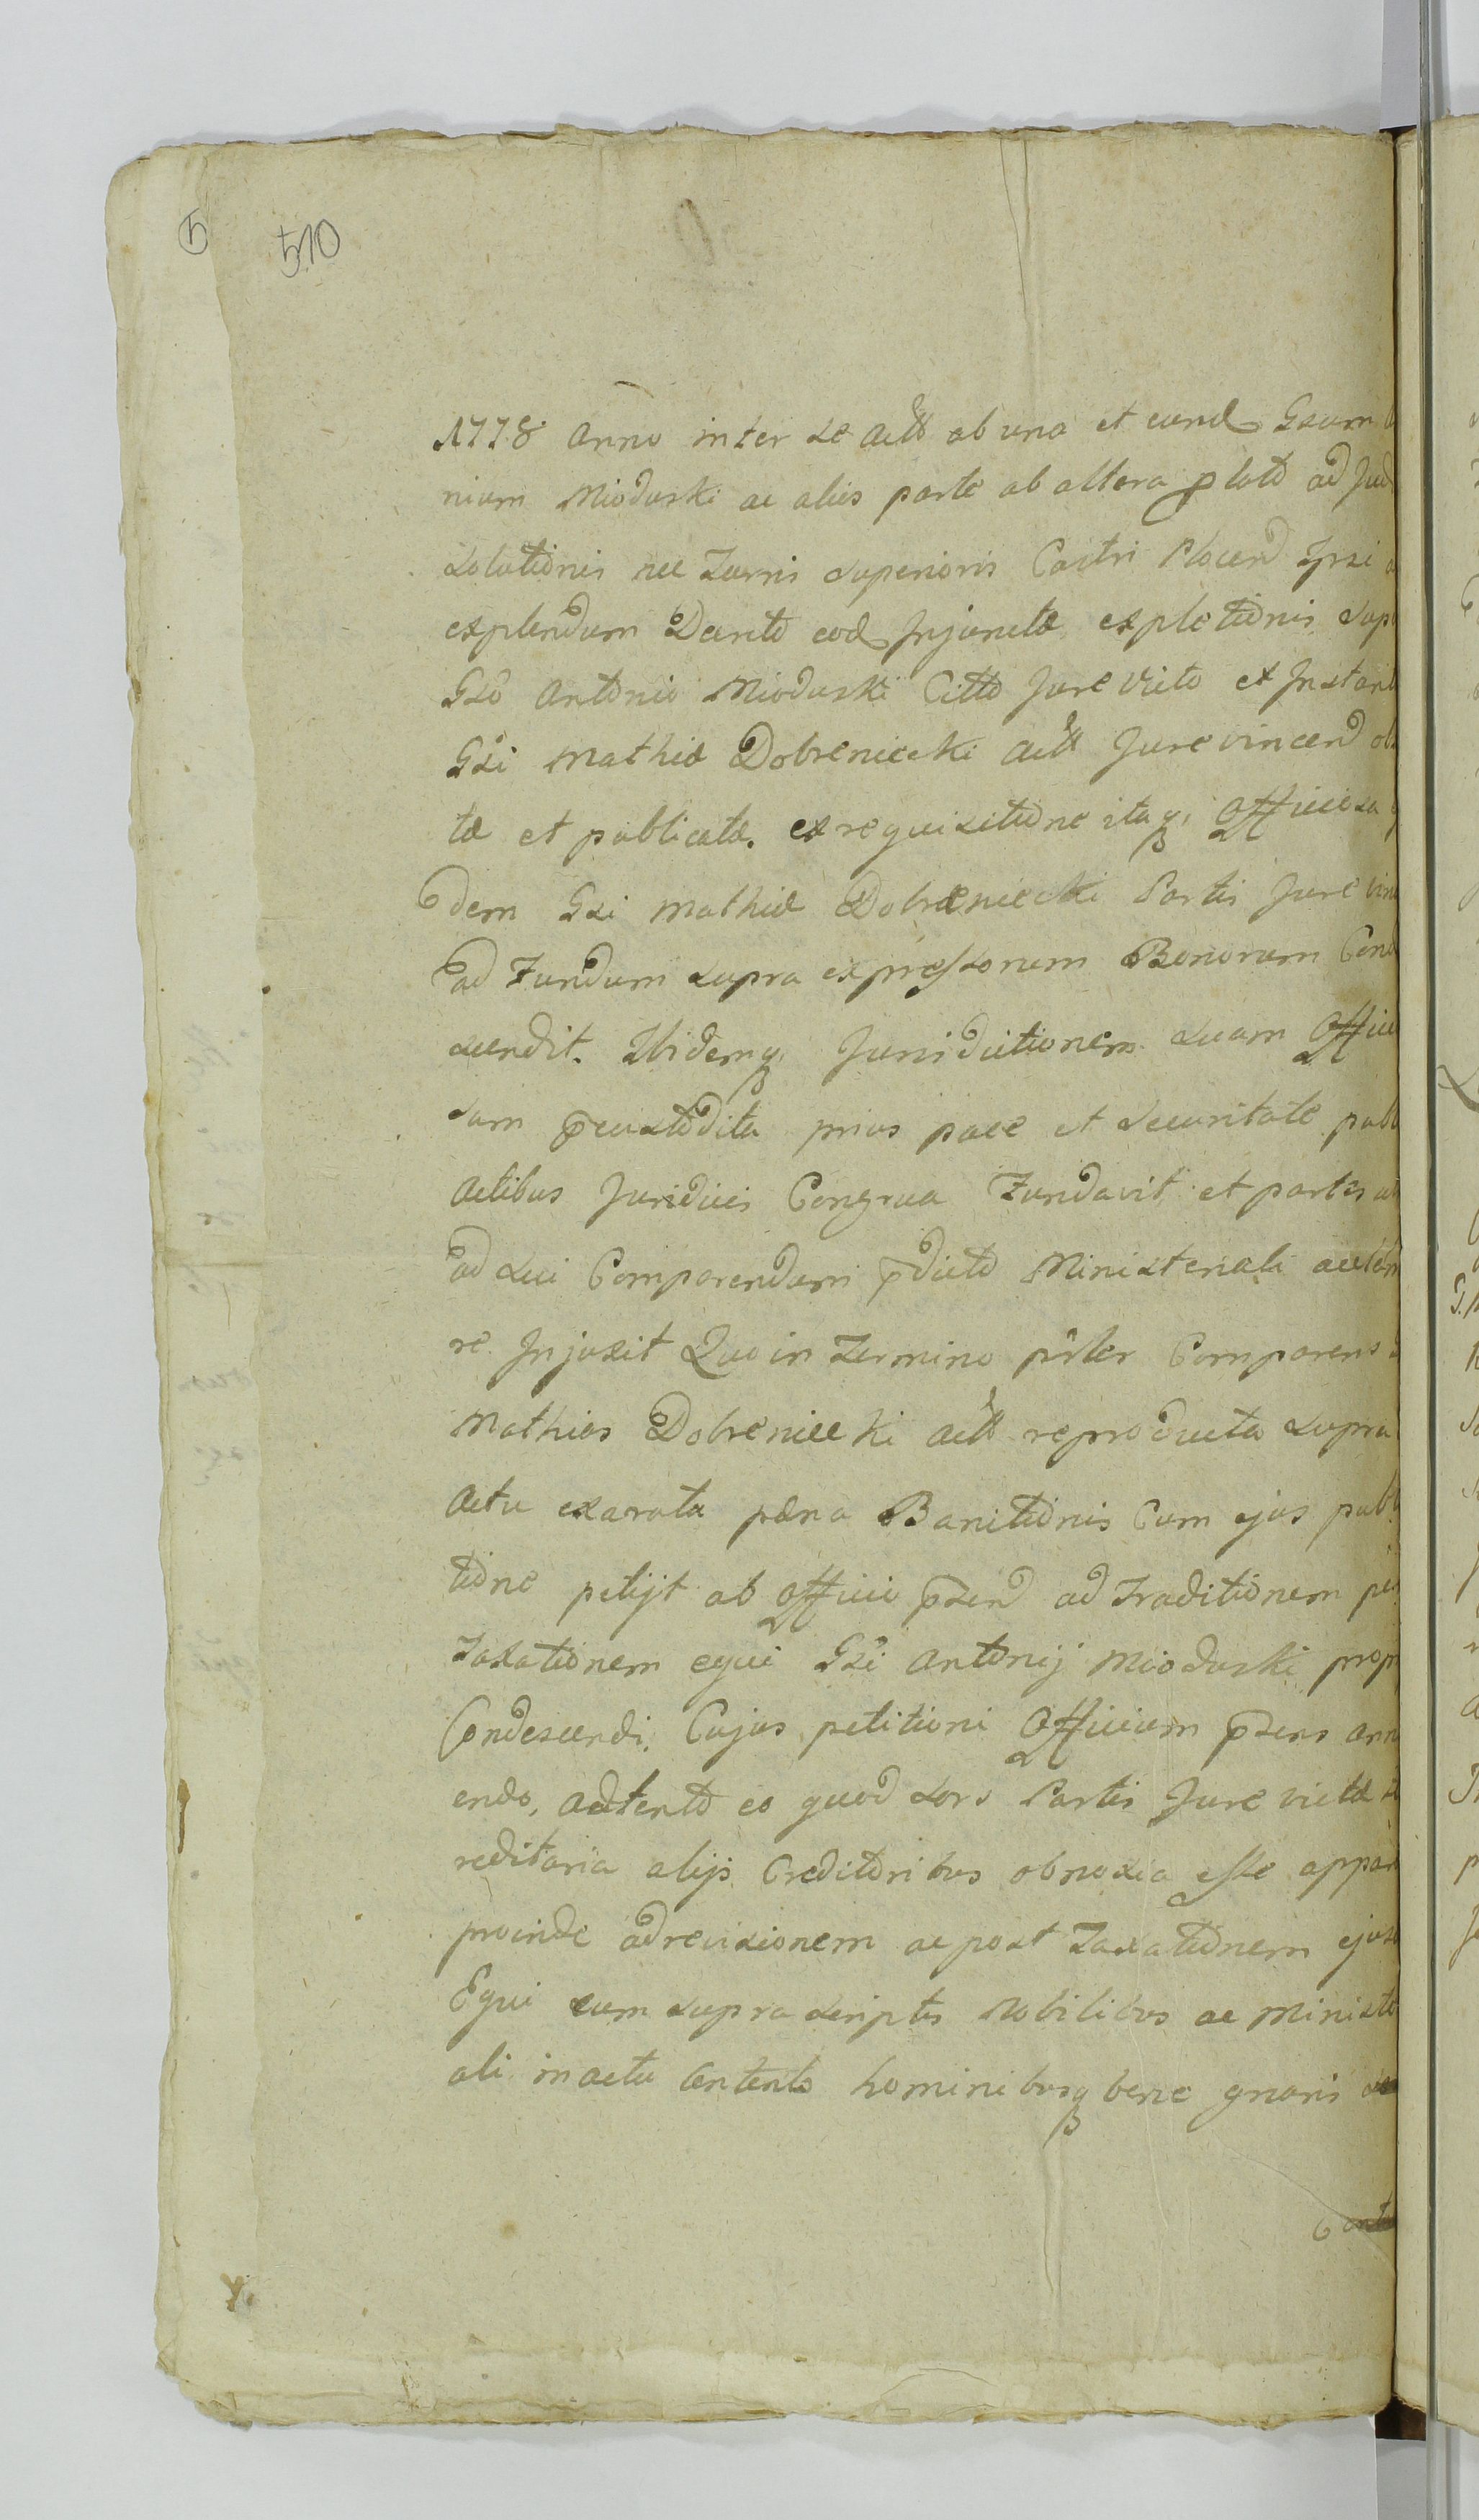 5
510
1778 anno inter se actt ab una et eund Gsum
nium Mioduski ac aliis parte ab altera plato ad Jud
Solutionis nec Turris superioris Castri Plocen Ipsi
explendum Decreto eod Injunctæ expletionis sup
Gso Antonio Mioduski Citto Jure victo ex Instan
Gsi Mathiæ Dobreniecki actt Jure vincen ob
tæ et publicatæ. ex requisitione itaq Officiosa
dem Gsi Mathiæ Dobrzeniecki Partis Jure vin
ad Fundum supra expressorum Bonorum Con
scendit. Ibidemq Jurisdictionem suam Offici
sam pcustodita prius pace et securitate publ
actibus Juridicis Congrua Fundavit et partes
ad sui Comparendum pdicto Ministeriali acclam
re Injuxit Quo in Termino pnter Comparens
Mathias Dobreniecki actt reproducta supra
actu exarata pæna Banitionis Cum ejus publ
tione petijt ab officio psend ad Traditionem
Taxationem equi Gsi Antonij Mioduski prop
Condescendi. Cujus petitioni Officium psens ann
endo, adtento eo quod sors Partis Jure victæ
reditaria alijs Creditoribus obnoxia esse appar
proinde ad revisionem ac post Taxationem ejus
Equi cum suprascriptis Nobilibus ac Ministe
ali in actu Contento hominibusq bene gnaris